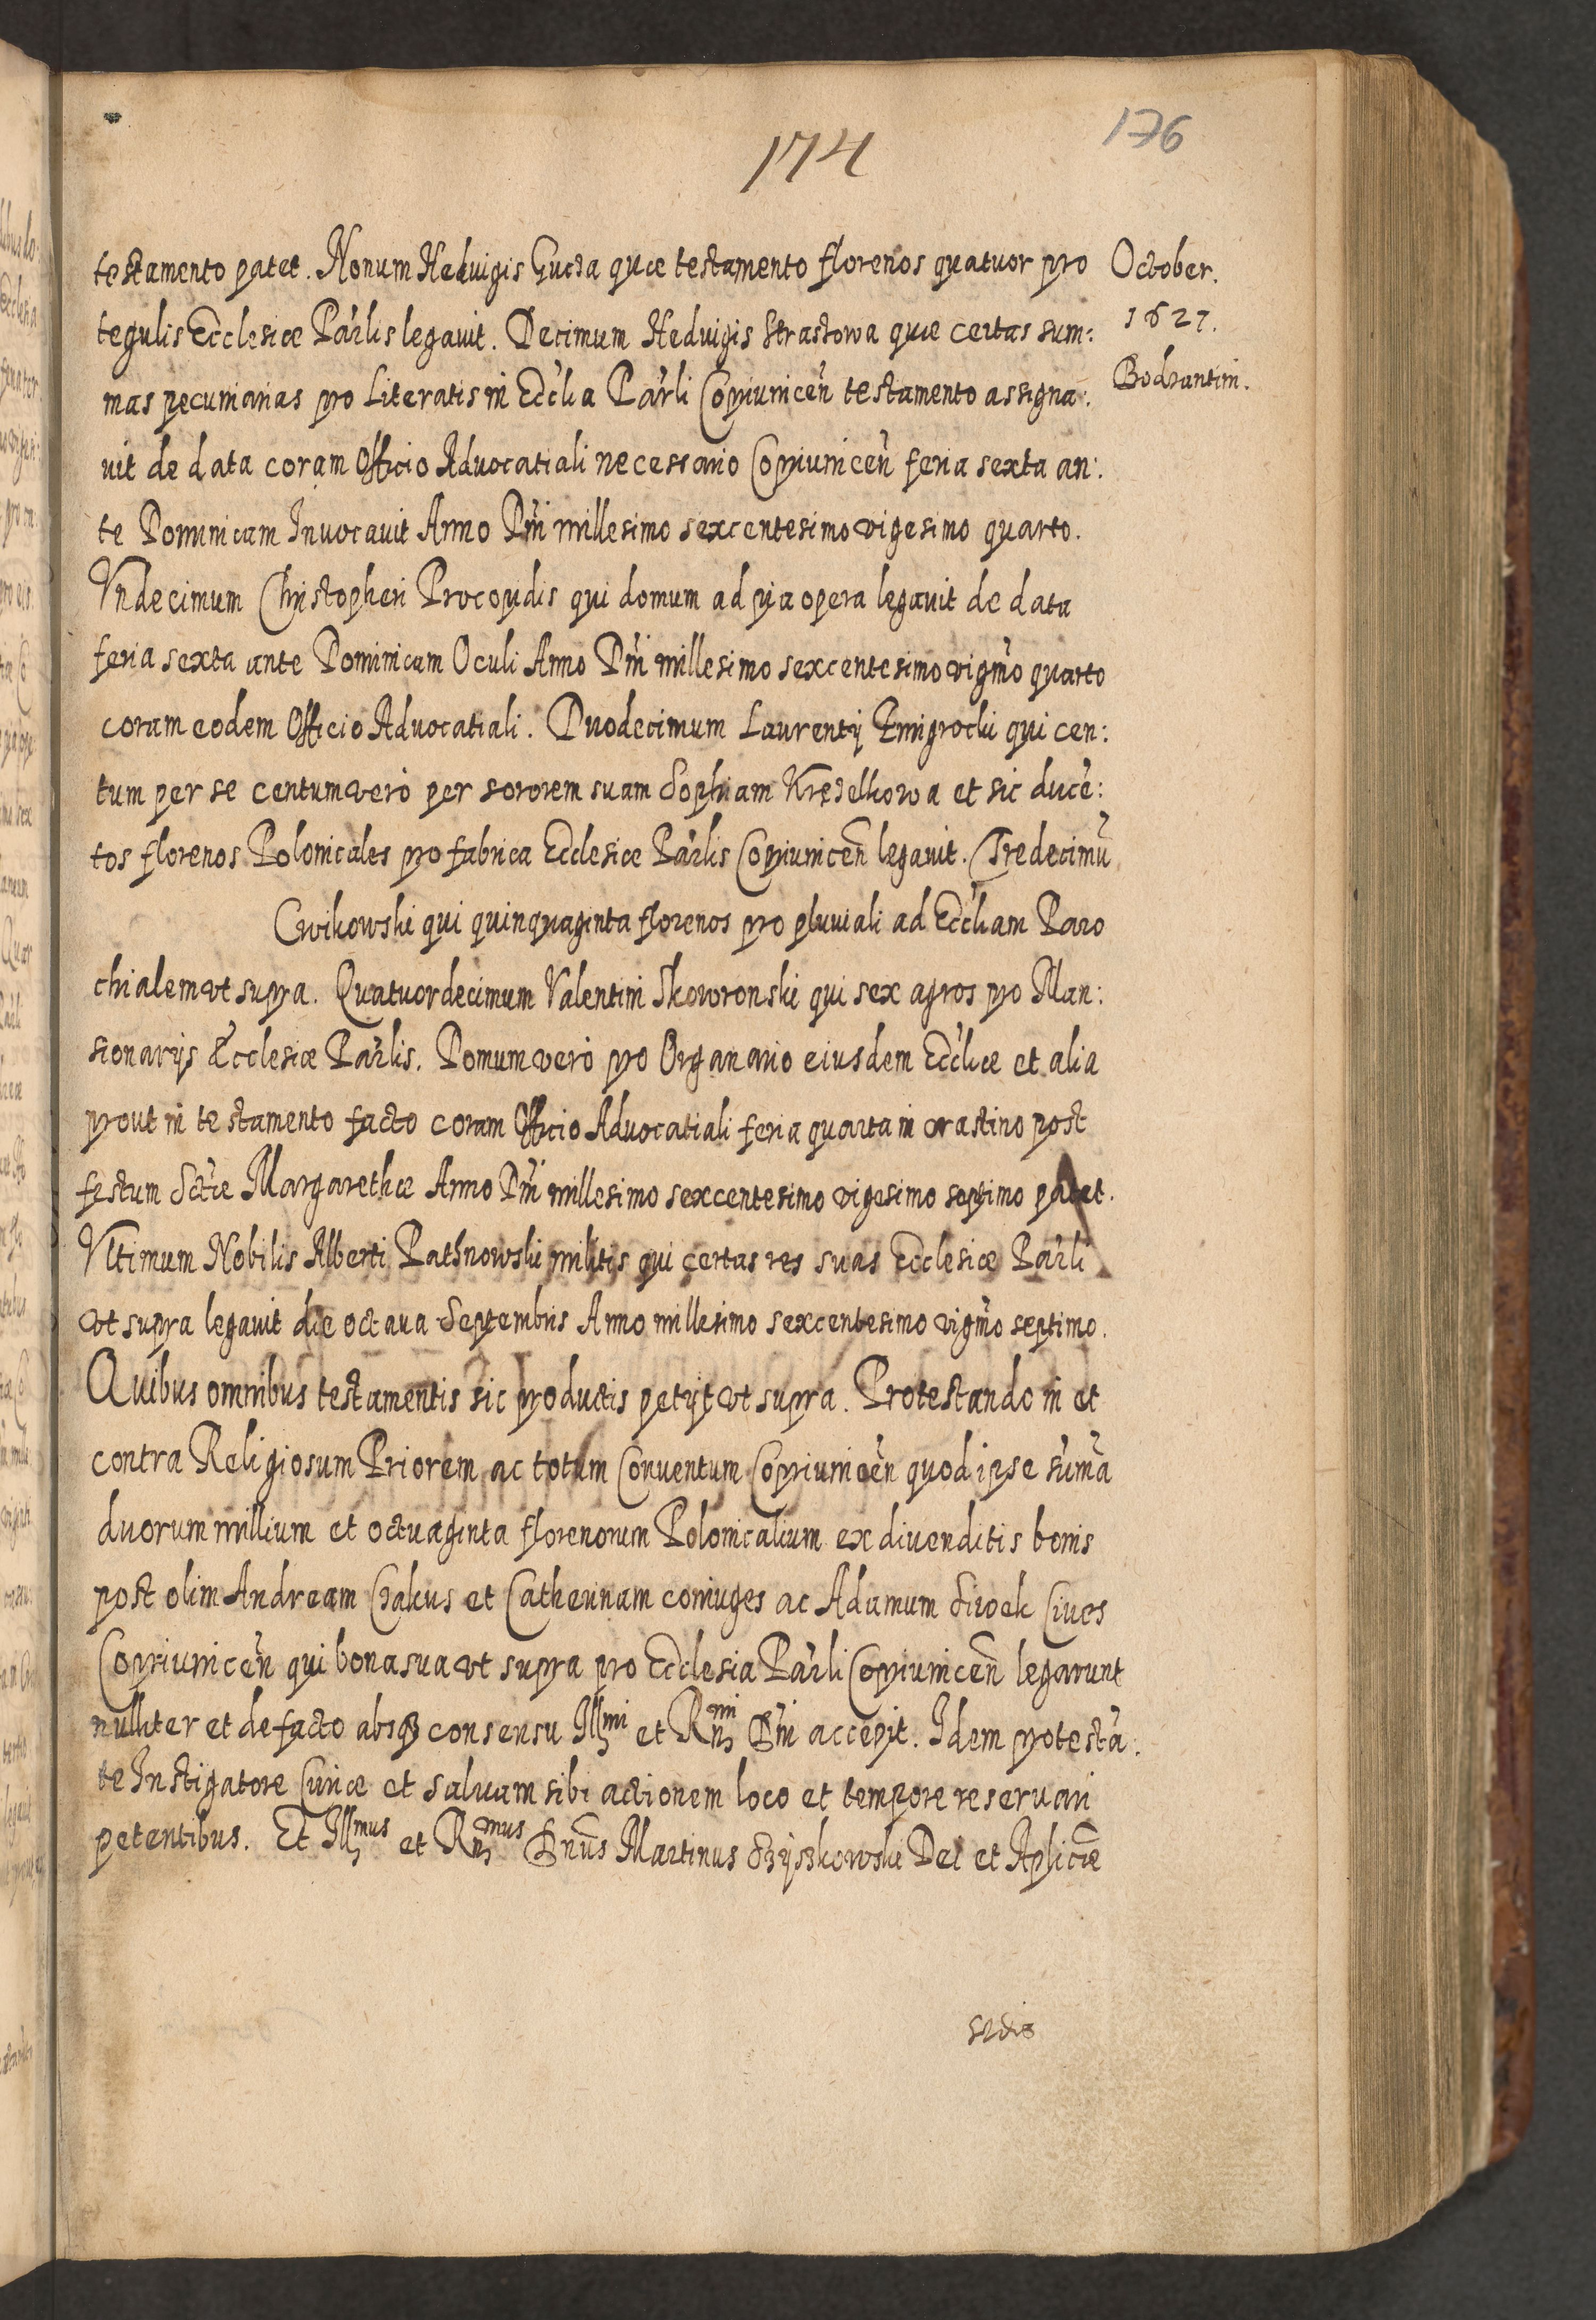 174
176
October.
1627.
Bodzantin.
testamento patet. Nonum Heduigis Gucza quæ testamento florenos quatuor pro
tegulis Ecclesiæ Párlis legauit. Decimum Heduigis Straszowa quæ certas sum:
mas pecuniarias pro Literatis in Ecclia Párli Coprziunicen̄ testamento assigna:
uit de data coram Officio Aduocatiali necessario Coprziunicen̄ feria sexta an:
te Dominicam Inuocauit Anno Dn̄i millesimo sexcentesimo vigesimo quarto.
Vndecimum Christopheri Procopidis qui domum ad pia opera legauit de data
feria sexta ante Dominicam Oculi Anno Dn̄i millesimo sexcentesimo vigm̄o quarto
coram eodem Officio Aduocatiali. Duodecimum Laurentij Zmigrocki qui cen:
tum per se centum verò per sororem suam Sophiam et sic ducē:
tos florenos Polonicales pro fabrica Ecclesiæ Párlis Coprziunicen̄ legauit. Tredecimū
Cwikowski qui quinquaginta florenos pro pluuiali ad Eccliam Paro
chialem vt supra. Quatuordecimum Valentini Skowronski qui sex agros pro Man:
sionarijs Ecclesiæ Párlis. Domum verò pro Organario eiusdem Eccliæ et alia
prout in testamento facto coram Officio Aduocatiali feria quarta in crastino post
festum Sctæ Margarethæ Anno Dn̄i millesimo sexcentesimo vigesimo septimo patet.
Vltimum Nobilis Alberti Rathnowski militis qui certas res suas Ecclesiæ Párli
vt supra legauit die octaua Septembris Anno millesimo sexcentesimo vigm̄o septimo.
Quibus omnibus testamentis sic productis petijt vt supra. Protestando in et
contra Religiosum Priorem ac totum Conuentum Coprziunicen̄ quod ipse sum̄ā
duorum millium et octuaginta florenorum Polonicalium ex diuenditis bonis
post olim Andream Czakus et Catherinam coniuges ac Adamum Siwek Ciues
Coprziunicen̄ qui bona sua vt supra pro Ecclesia Párli Coprziunicen̄ legarunt
nulliter et de facto absq consensu Illmi et Rn̄mi Dn̄i accepit. Idem protestā:
te Instigatore Curiæ et saluam sibi actionem loco et tempore reseruari
petentibus. Et Illmus et Rn̄mus Dn̄us Martinus Szyszkowski Dei et Aplicæ
sedis